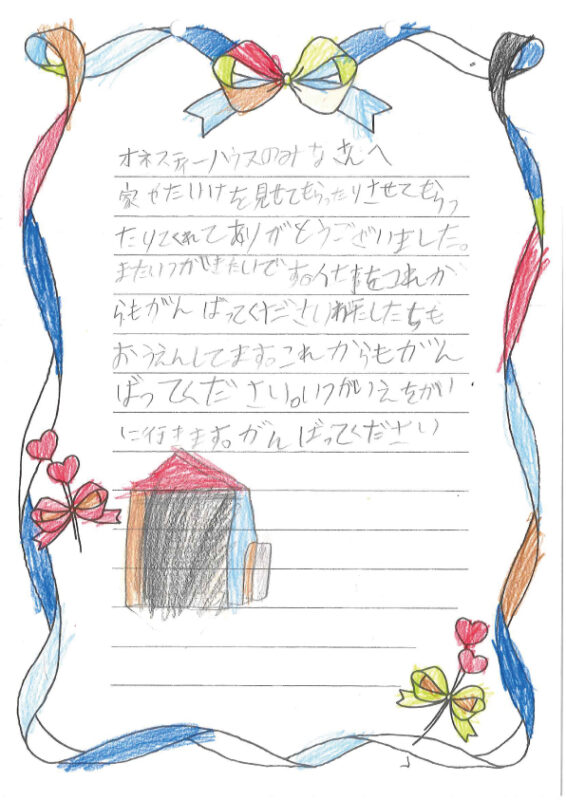 オネスティーハウスのみなさんへ
家やたいけを見せてもらったりさせてもらっ
たりてくれてありがとうございました。
またいつがきたいです。を これか
らもがんばってください したちも
おうえんしてます。これからもがん
ばってください。いつかいえをかい
に行きます。がんばってください